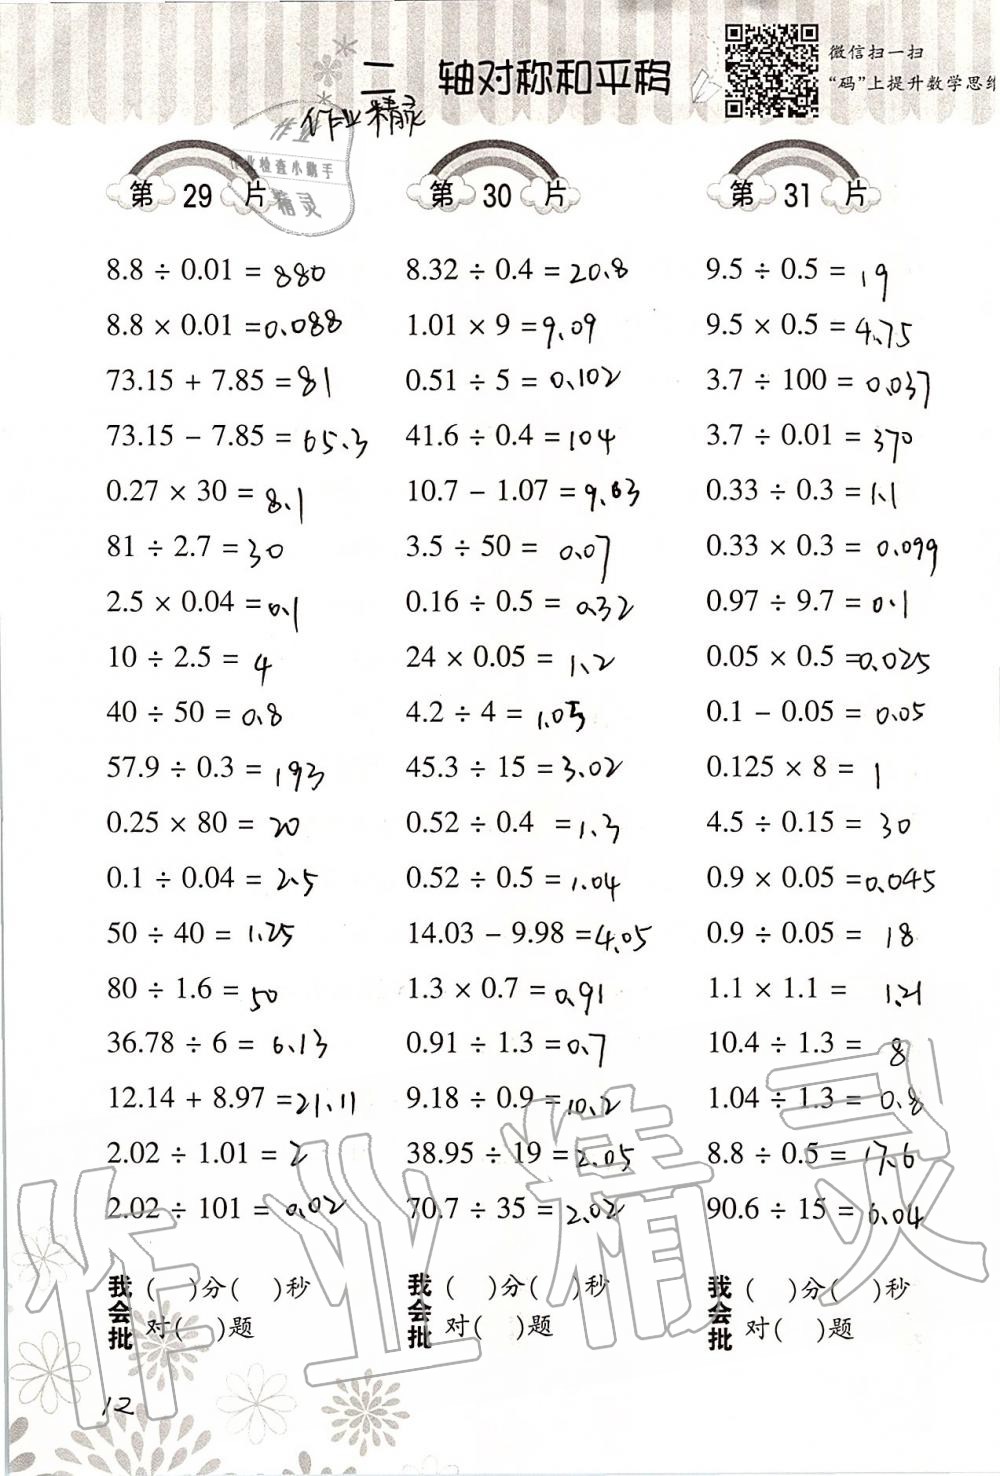 二 轴对称和平移
微信扫一扫
“码”上提升数学思维
作业精灵
作业
作业检查小助手
精灵
第 29 片
8.8 ÷ 0.01 = 880
8.8 × 0.01 = 0.088
73.15 + 7.85 = 81
73.15 - 7.85 = 65.3
0.27 × 30 = 8.1
81 ÷ 2.7 = 30
2.5 × 0.04 = 0.1
10 ÷ 2.5 = 4
40 ÷ 50 = 0.8
57.9 ÷ 0.3 = 193
0.25 × 80 = 20
0.1 ÷ 0.04 = 2.5
50 ÷ 40 = 1.25
80 ÷ 1.6 = 50
36.78 ÷ 6 = 6.13
12.14 + 8.97 = 21.11
2.02 ÷ 1.01 = 2
2.02 ÷ 101 = 0.02
我会批 ( )分( )秒
对( )题
第 30 片
8.32 ÷ 0.4 = 20.8
1.01 × 9 = 9.09
0.51 ÷ 5 = 0.102
41.6 ÷ 0.4 = 104
10.7 - 1.07 = 9.63
3.5 ÷ 50 = 0.07
0.16 ÷ 0.5 = 0.32
24 × 0.05 = 1.2
4.2 ÷ 4 = 1.05
45.3 ÷ 15 = 3.02
0.52 ÷ 0.4 = 1.3
0.52 ÷ 0.5 = 1.04
14.03 - 9.98 = 4.05
1.3 × 0.7 = 0.91
0.91 ÷ 1.3 = 0.7
9.18 ÷ 0.9 = 10.2
38.95 ÷ 19 = 2.05
70.7 ÷ 35 = 2.02
我会批 ( )分( )秒
对( )题
第 31 片
9.5 ÷ 0.5 = 19
9.5 × 0.5 = 4.75
3.7 ÷ 100 = 0.037
3.7 ÷ 0.01 = 370
0.33 ÷ 0.3 = 1.1
0.33 × 0.3 = 0.099
0.97 ÷ 9.7 = 0.1
0.05 × 0.5 = 0.025
0.1 - 0.05 = 0.05
0.125 × 8 = 1
4.5 ÷ 0.15 = 30
0.9 × 0.05 = 0.045
0.9 ÷ 0.05 = 18
1.1 × 1.1 = 1.21
10.4 ÷ 1.3 = 8
1.04 ÷ 1.3 = 0.8
8.8 ÷ 0.5 = 17.6
90.6 ÷ 15 = 6.04
我会批 ( )分( )秒
对( )题
作业精灵
12